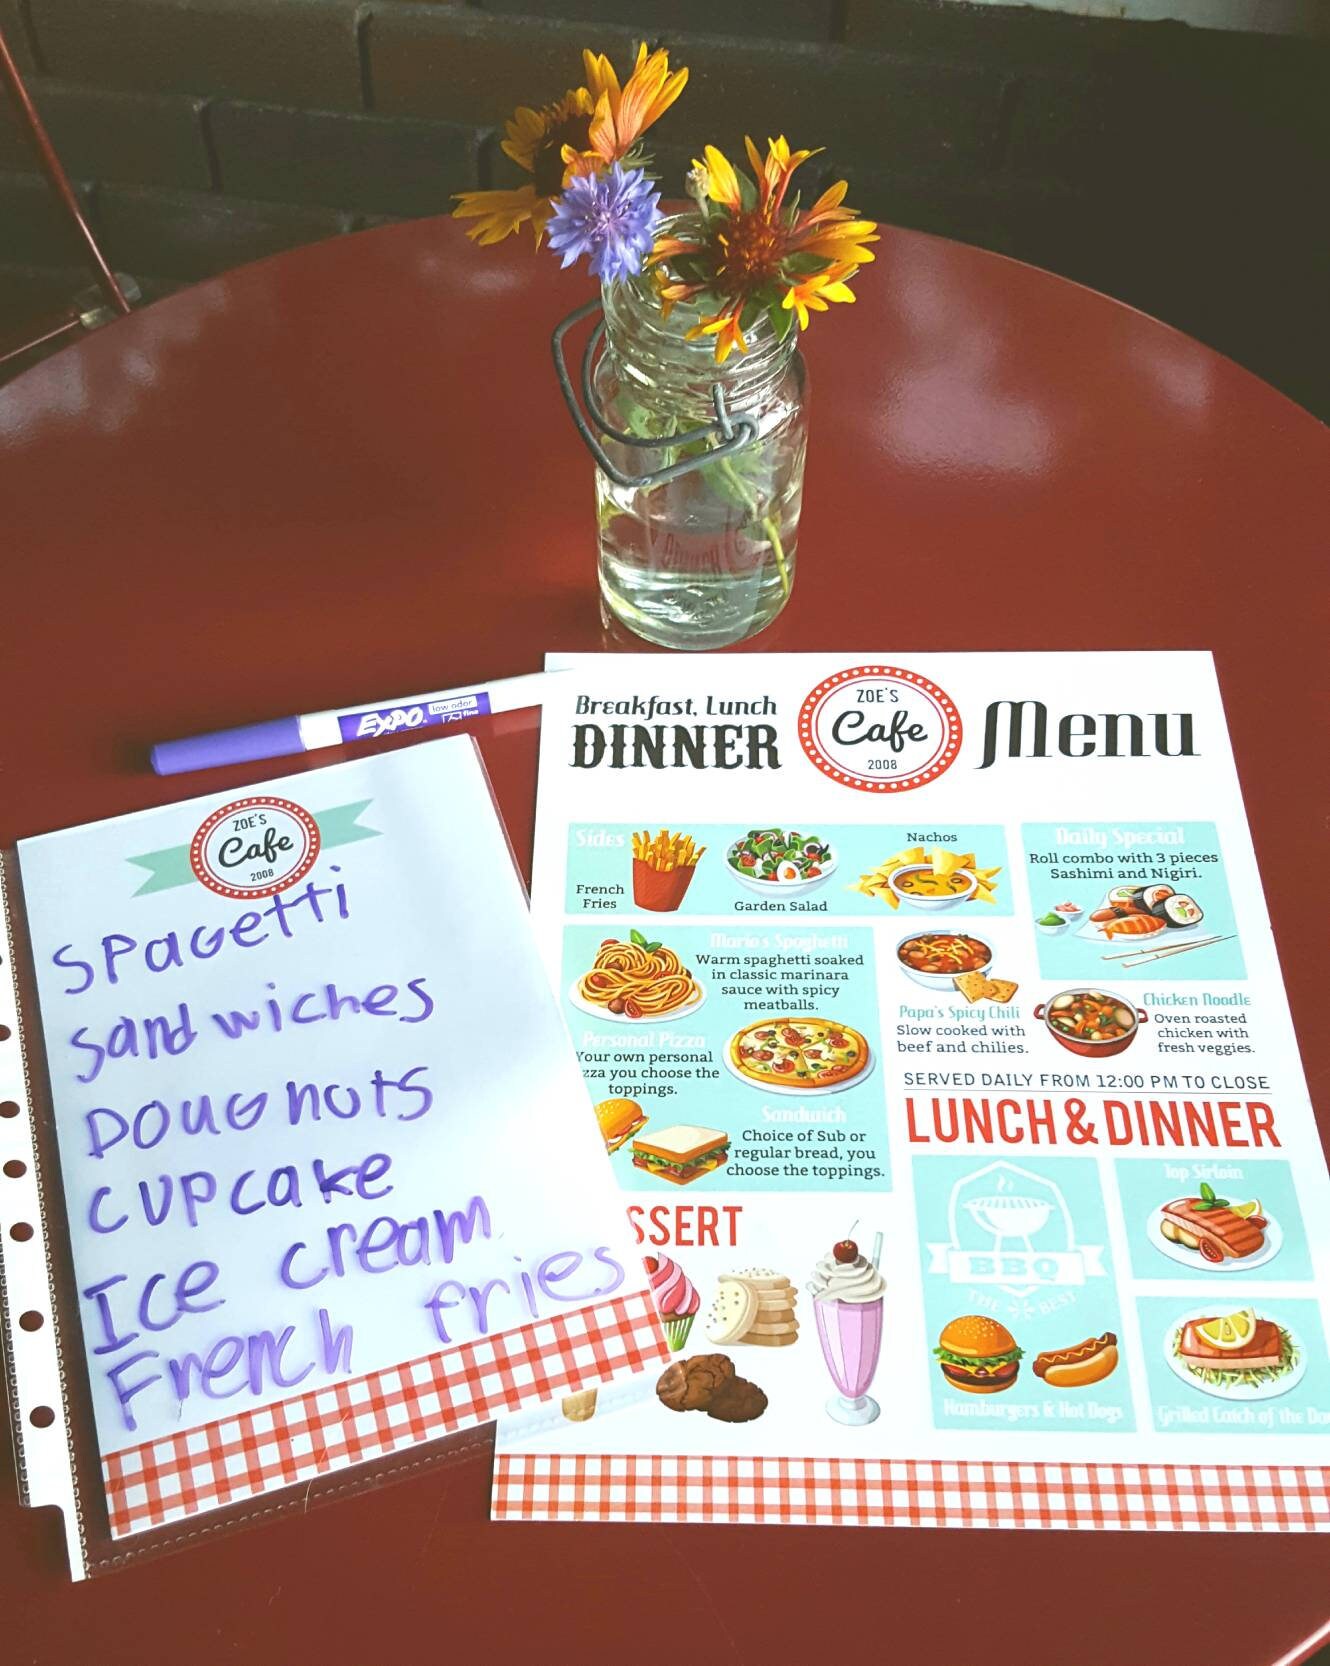 EXPO
low odor
fine
ZOE'S
Cafe
2008
SPAGetti
Sandwiches
DOUGnuts
CUPcake
Ice cream
French fries
Breakfast, Lunch
DINNER
ZOE'S
Cafe
2008
Menu
Sides
French
Fries
Garden Salad
Nachos
Daily Special
Roll combo with 3 pieces
Sashimi and Nigiri.
Mario's Spaghetti
Warm spaghetti soaked
in classic marinara
sauce with spicy
meatballs.
Personal Pizza
Your own personal
zza you choose the
toppings.
Sandwich
Choice of Sub or
regular bread, you
choose the toppings.
Papa's Spicy Chili
Slow cooked with
beef and chilies.
Chicken Noodle
Oven roasted
chicken with
fresh veggies.
SERVED DAILY FROM 12:00 PM TO CLOSE
LUNCH & DINNER
SSERT
BBQ
THE BEST
Hamburgers & Hot Dogs
Top Sirloin
Grilled Catch of the Da